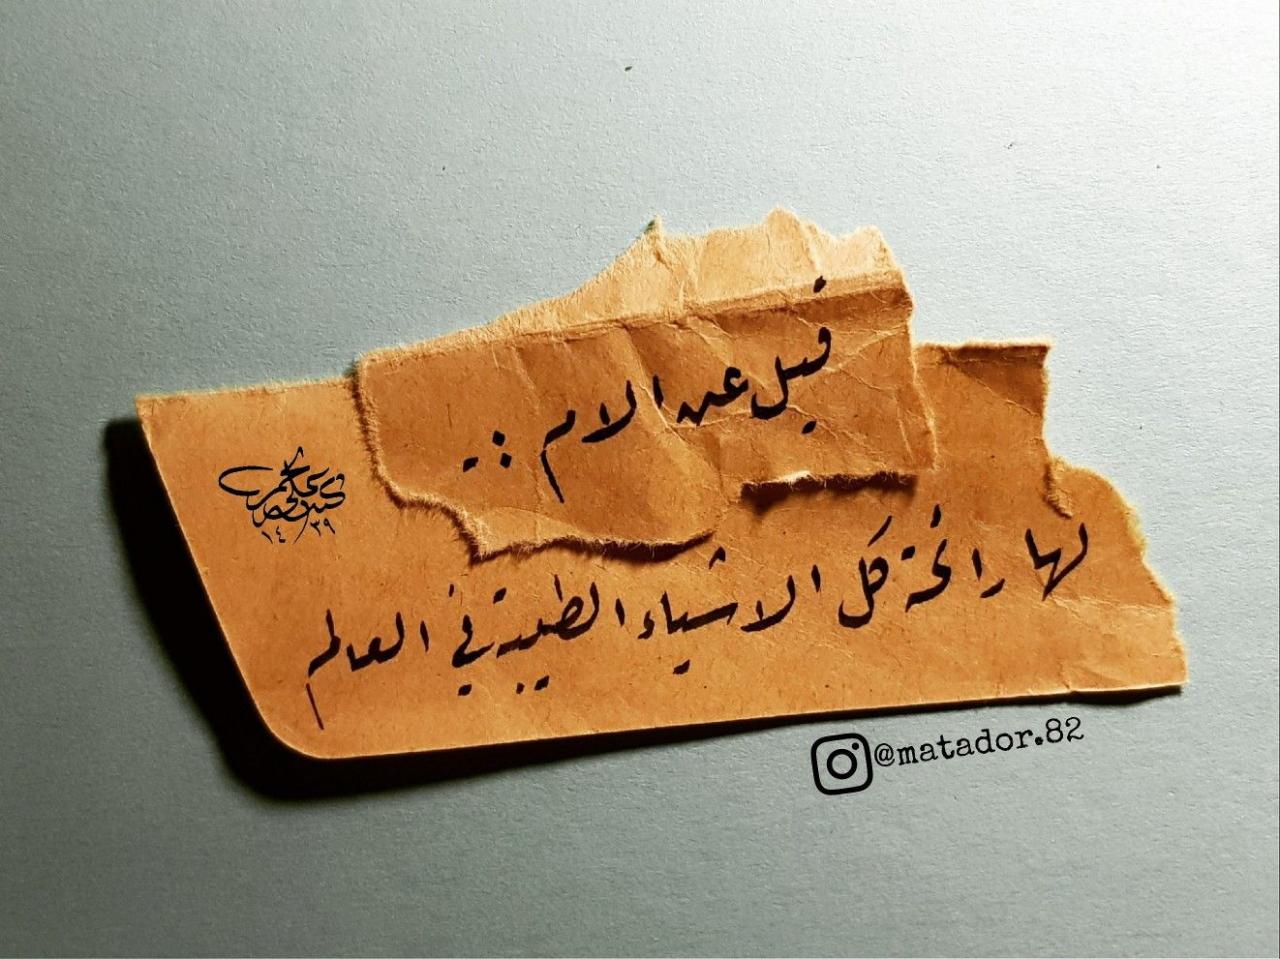 قيل عن الام :.
لها رائحة كل الاشياء الطيبة في العالم
١٤٣٩
@matador.82